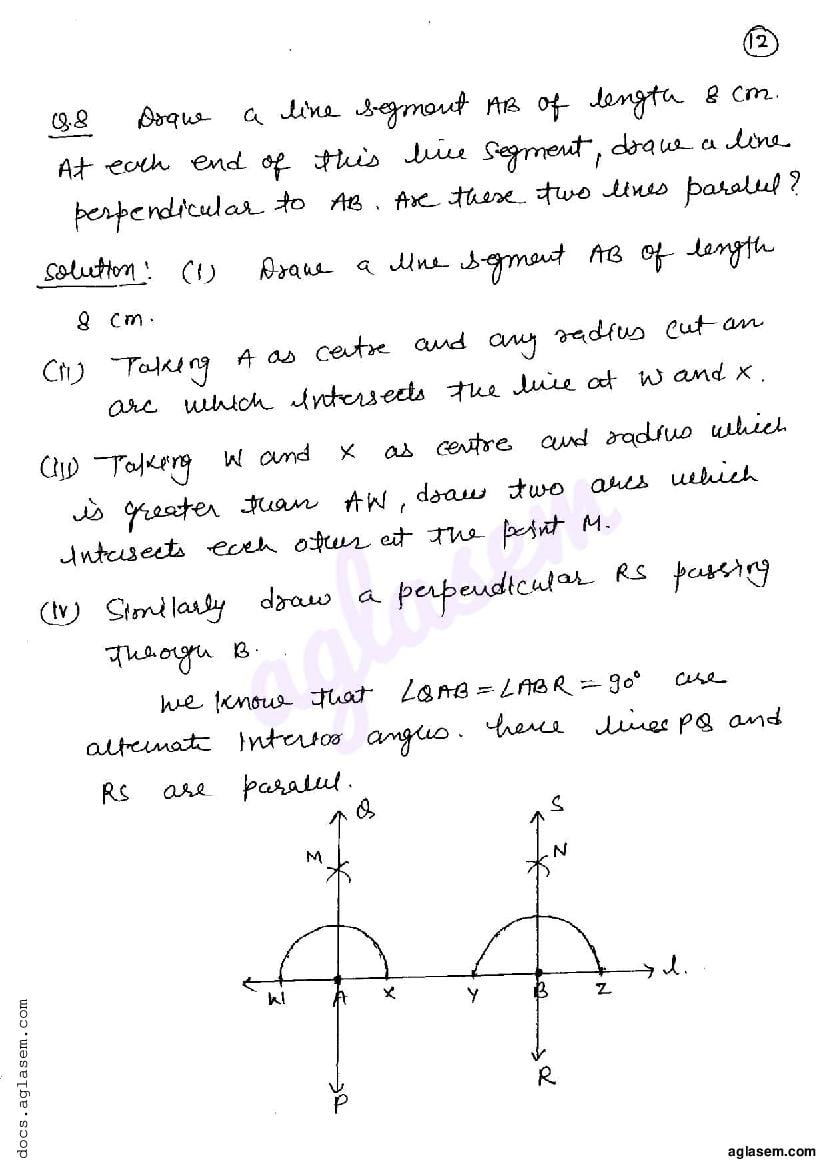 12
Q.8 Draw a line segment AB of length 8 cm.
At each end of this line segment, draw a line
perpendicular to AB. Are these two lines parallel?
Solution: (i) Draw a line segment AB of length
8 cm.
(ii) Taking A as centre and any radius cut an
arc which intersects the line at W and X.
(iii) Taking W and X as centre and radius which
is greater than AW, draw two arcs which
intersects each other at the point M.
(iv) Similarly draw a perpendicular RS passing
theorgh B.
We know that ∠QAB = ∠ABR = 90° are
alternate interior angles. hence lines PQ and
RS are parallel.
Q S
M N
l.
W A X Y B Z
R
P
aglasem
docs.aglasem.com
aglasem.com